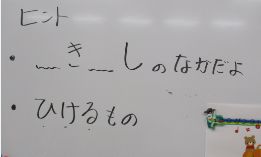 ヒント
・_き_しのなかだよ
・ひけるもの